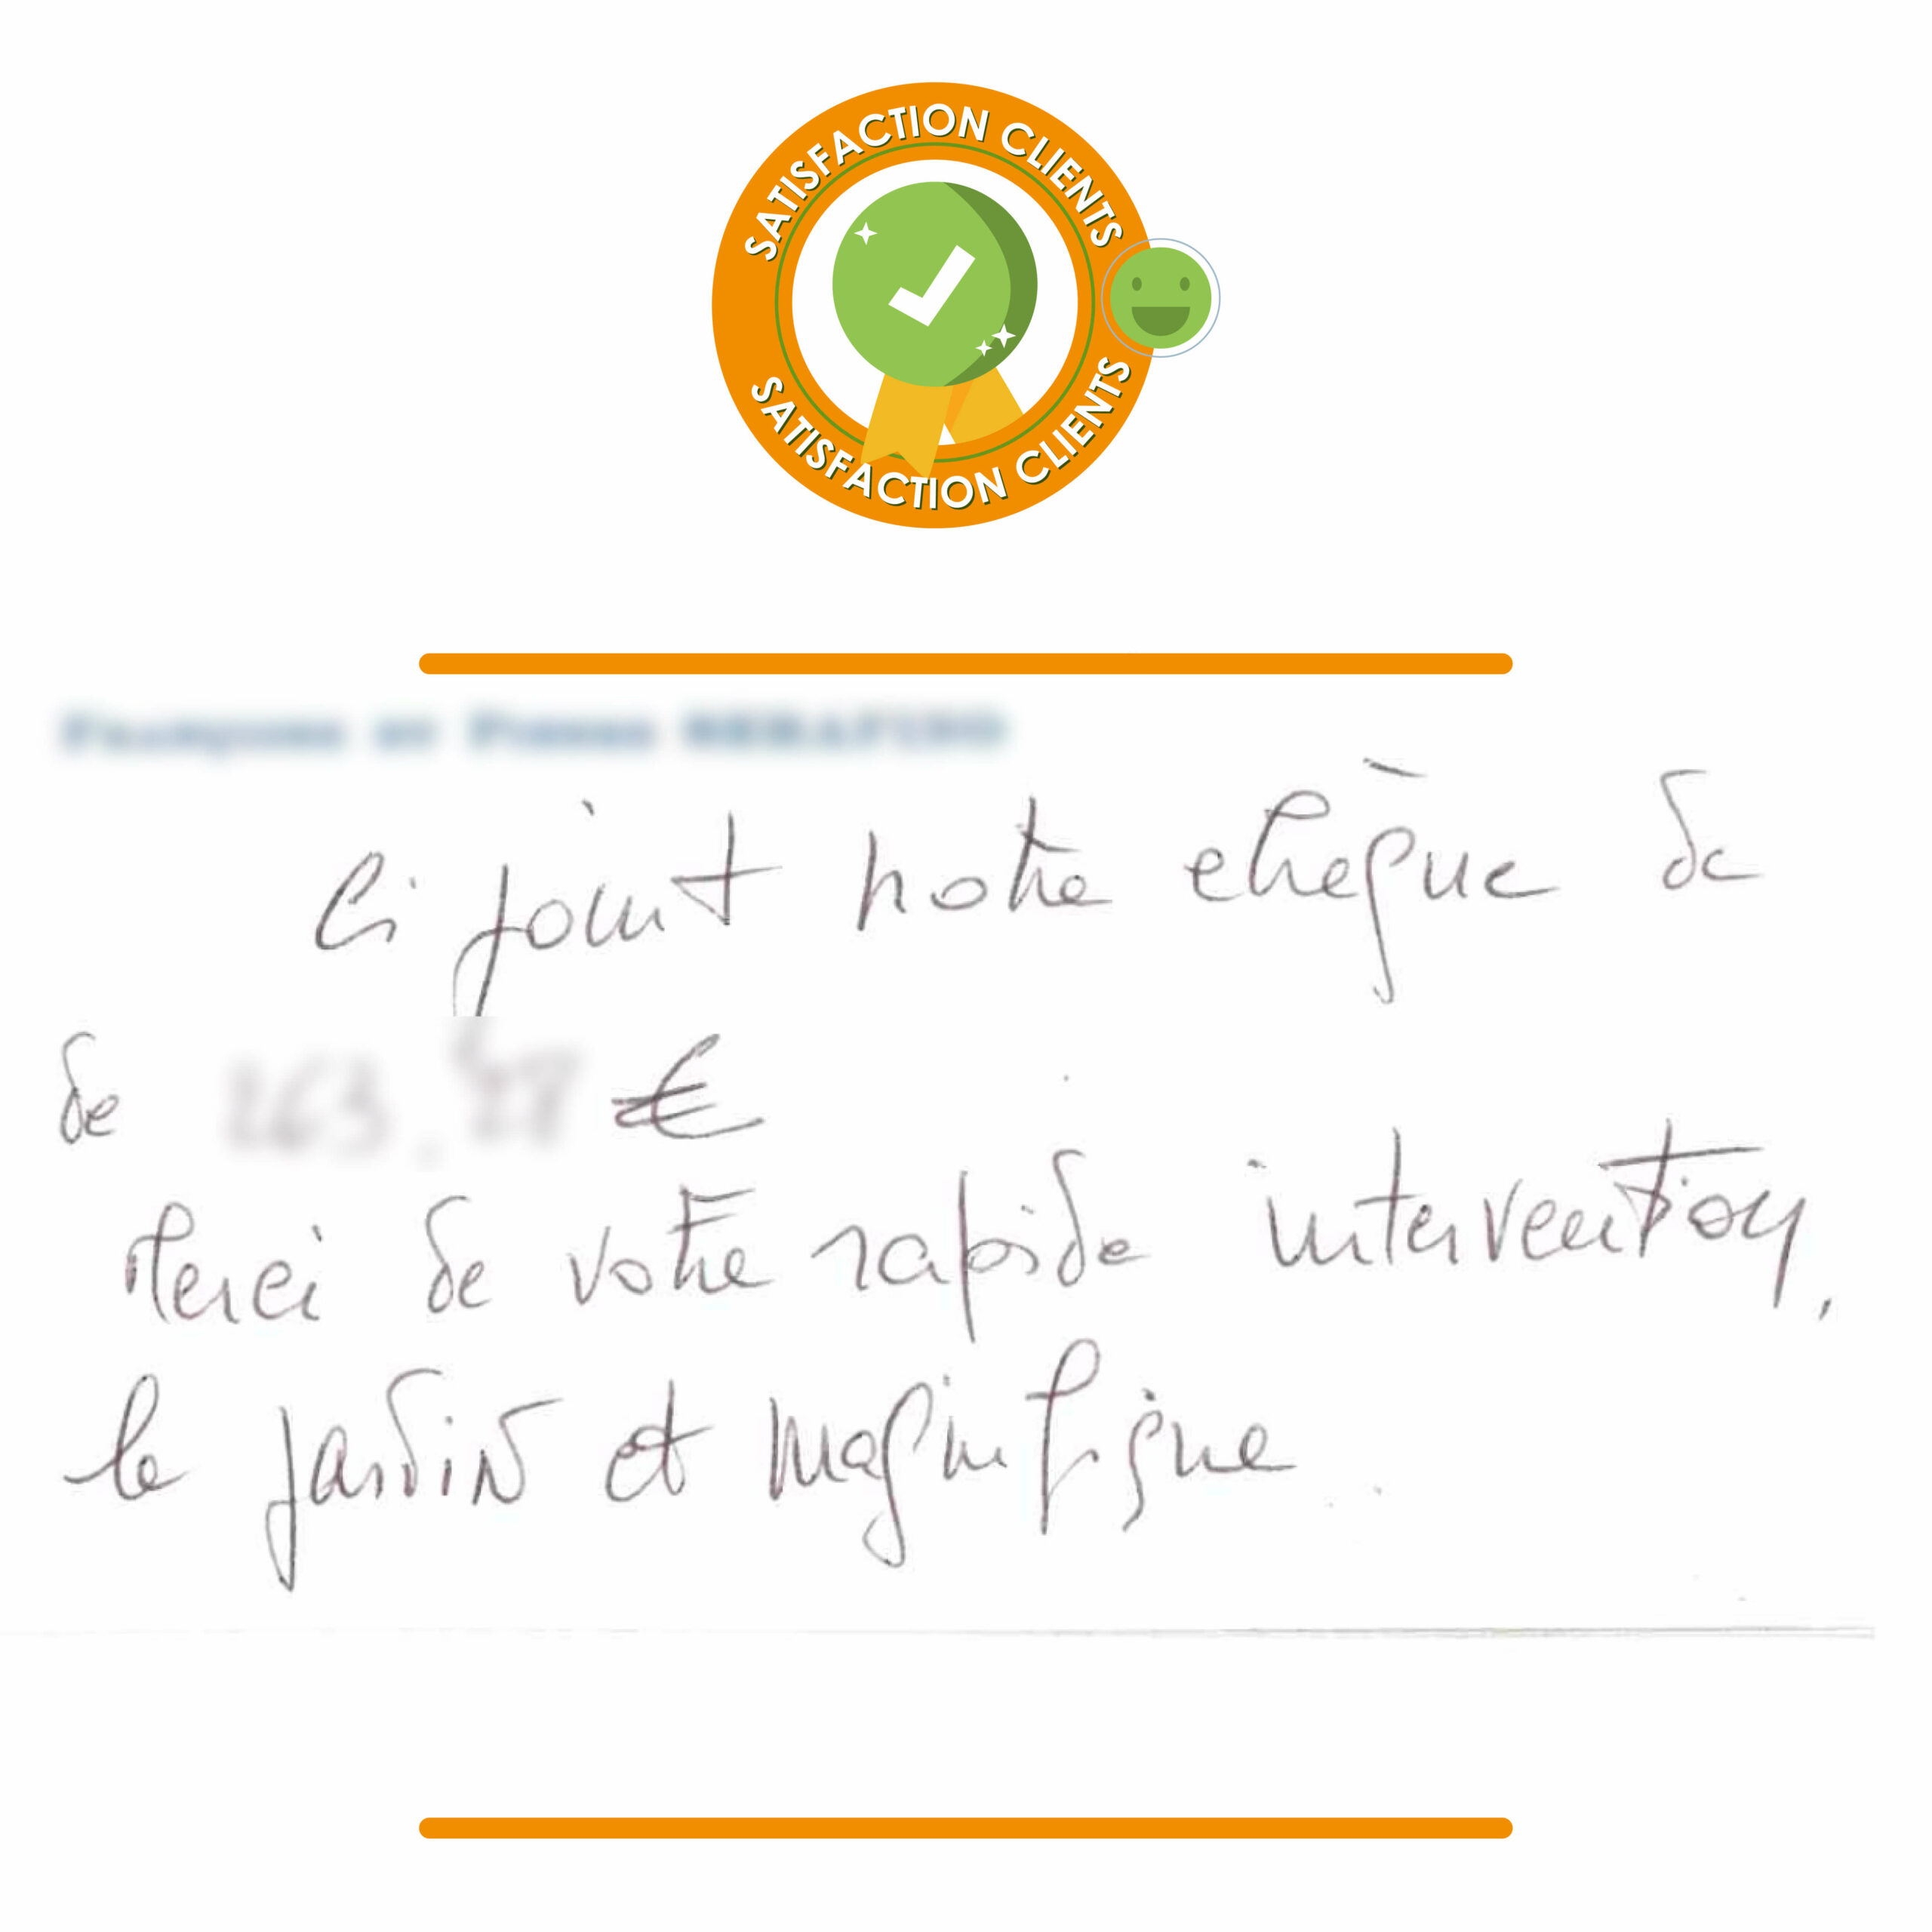 SATISFACTION CLIENTS
SATISFACTION CLIENTS
Ci joint notre chèque de
de €
Merci de votre rapide intervention,
le jardin et magnifique.